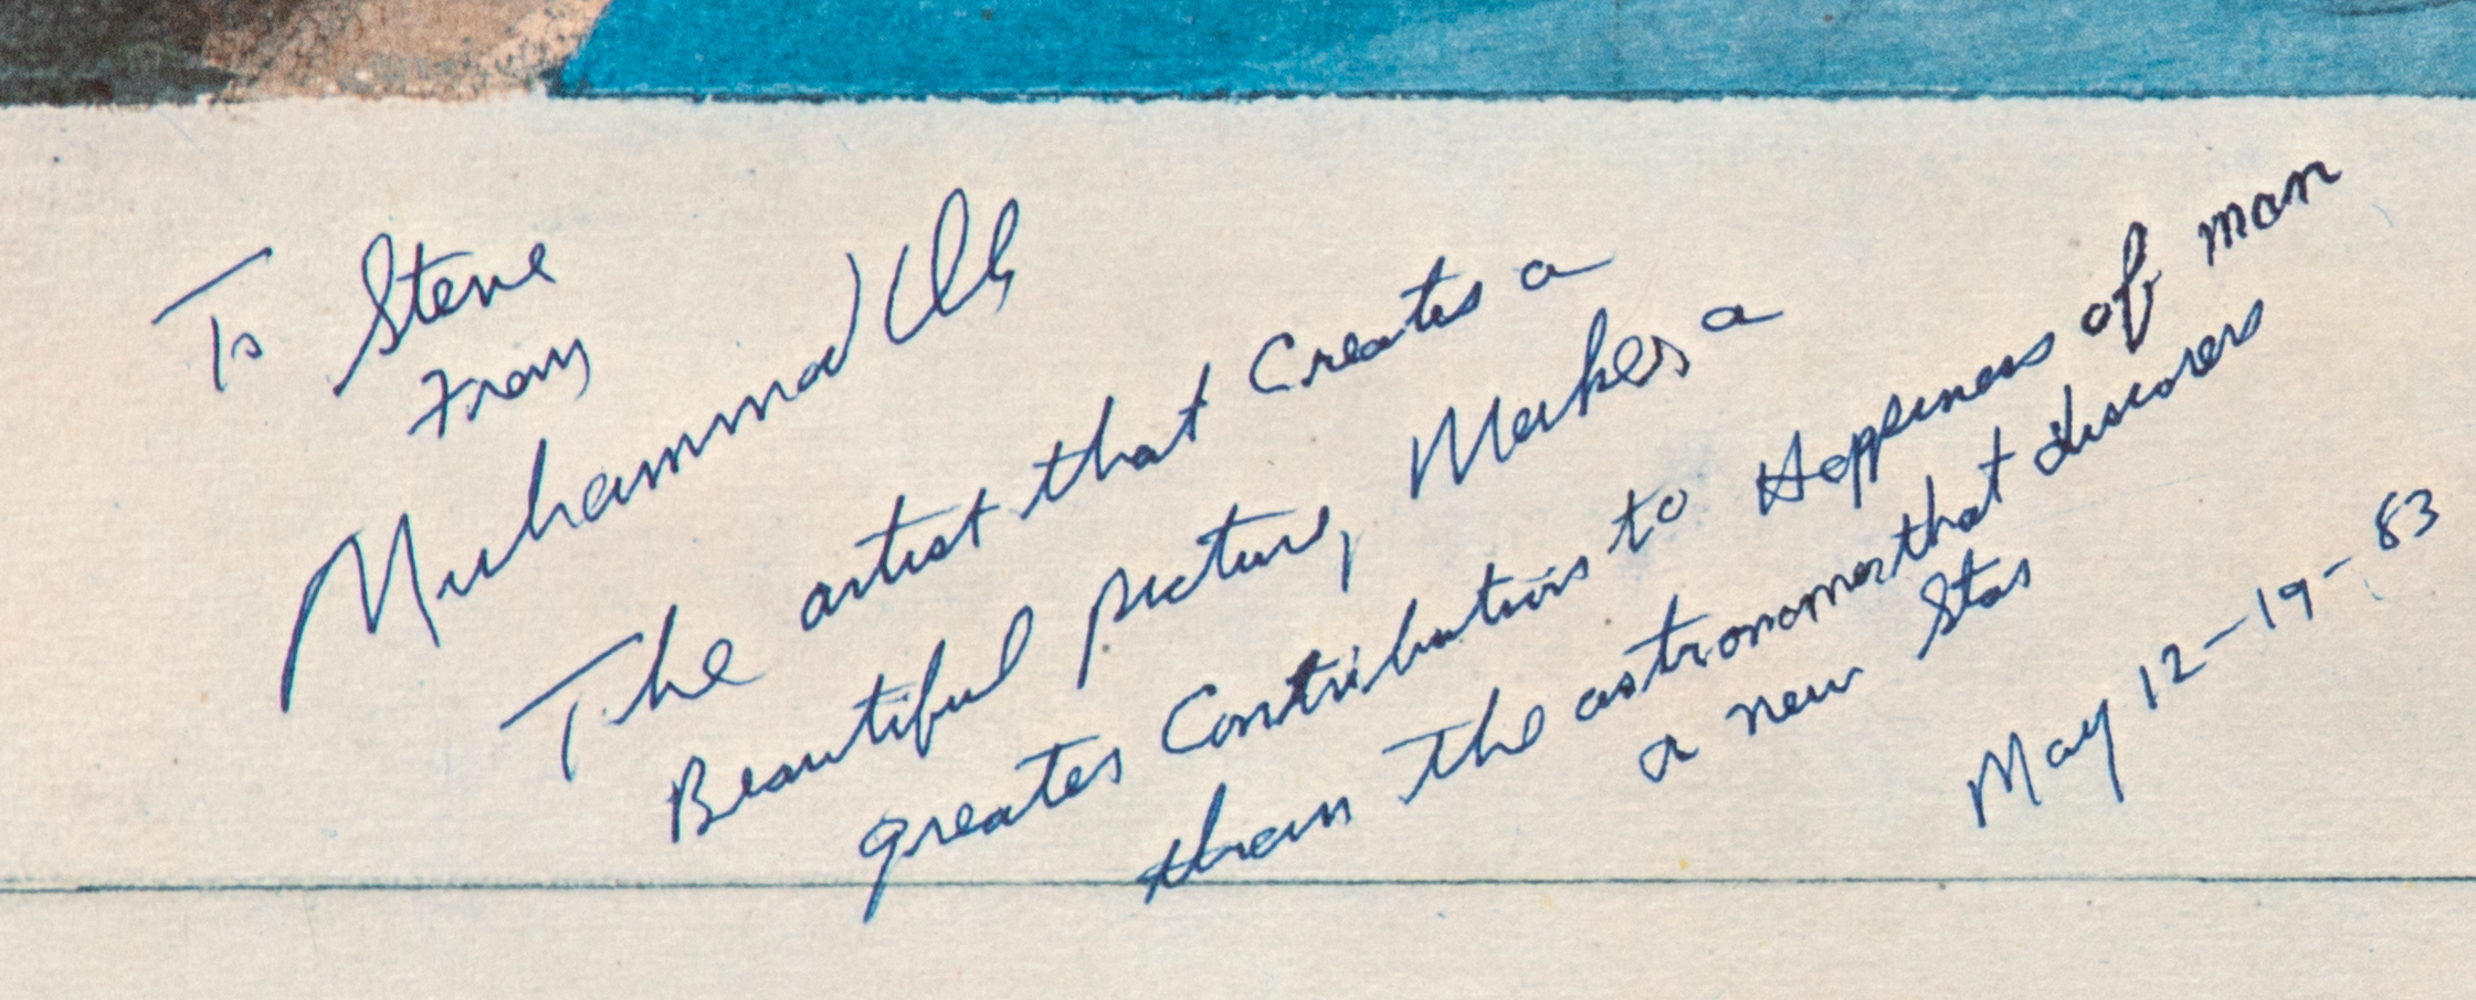 To Steve
From
Muhammad Ali
The artist that Creates a
Beautiful picture, Makes a
greates Contributions to Happiness of man
than The astronomer that discovers
a new Star
May 12-19-83